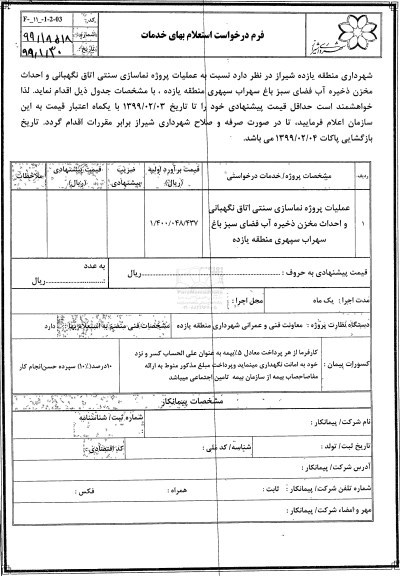 فرم درخواست استعلام بهای خدمات
کد: F-_11_-1-2-03
شهرداری منطقه یازده شیراز در نظر دارد نسبت به عملیات پروژه نماسازی سنتی اتاق نگهبانی و احداث
مخزن ذخیره آب فضای سبز باغ سهراب سپهری منطقه یازده ، با مشخصات جدول ذیل اقدام نماید. لذا
خواهشمند است حداقل قیمت پیشنهادی خود را تا تاریخ ۱۳۹۹/۰۲/۰۳ با یکماه اعتبار قیمت به این
سازمان اعلام فرمایید، تا در صورت صرفه و صلاح شهرداری شیراز برابر مقررات اقدام گردد. تاریخ
بازگشایی پاکات ۱۳۹۹/۰۲/۰۴ می باشد.
ردیف مشخصات پروژه/ خدمات درخواستی قیمت برآورد اولیه (ریال) ضریب پیشنهادی قیمت پیشنهادی (ریال) ملاحظات
۱ عملیات پروژه نماسازی سنتی اتاق نگهبانی
و احداث مخزن ذخیره آب فضای سبز باغ
سهراب سپهری منطقه یازده
۱/۴۰۰/۰۴۸/۴۳۷
قیمت پیشنهادی به حروف : ریال
به عدد
ریال
مدت اجرا : یک ماه محل اجرا :
دستگاه نظارت پروژه : معاونت فنی و عمرانی شهرداری منطقه یازده مشخصات فنی منضم به استعلام بها : دارد
کسورات پیمان : کارفرما از هر پرداخت معادل ۵٪بیمه به عنوان علی الحساب کسر و نزد
خود به امانت نگهداری مینماید وپرداخت مبلغ مذکور منوط به ارائه
مفاصاحساب بیمه از سازمان بیمه تامین اجتماعی میباشد
۱۰درصد(۱۰٪) سپرده حسن‌انجام کار
مشخصات پیمانکار
نام شرکت/ پیمانکار: شماره ثبت/ شناسنامه
تاریخ ثبت/ تولد : شناسه/ کد ملی : کد اقتصادی :
آدرس شرکت/ پیمانکار:
شماره تلفن شرکت/ پیمانکار: ثابت : همراه : فکس :
مهر و امضاء شرکت/ پیمانکار: